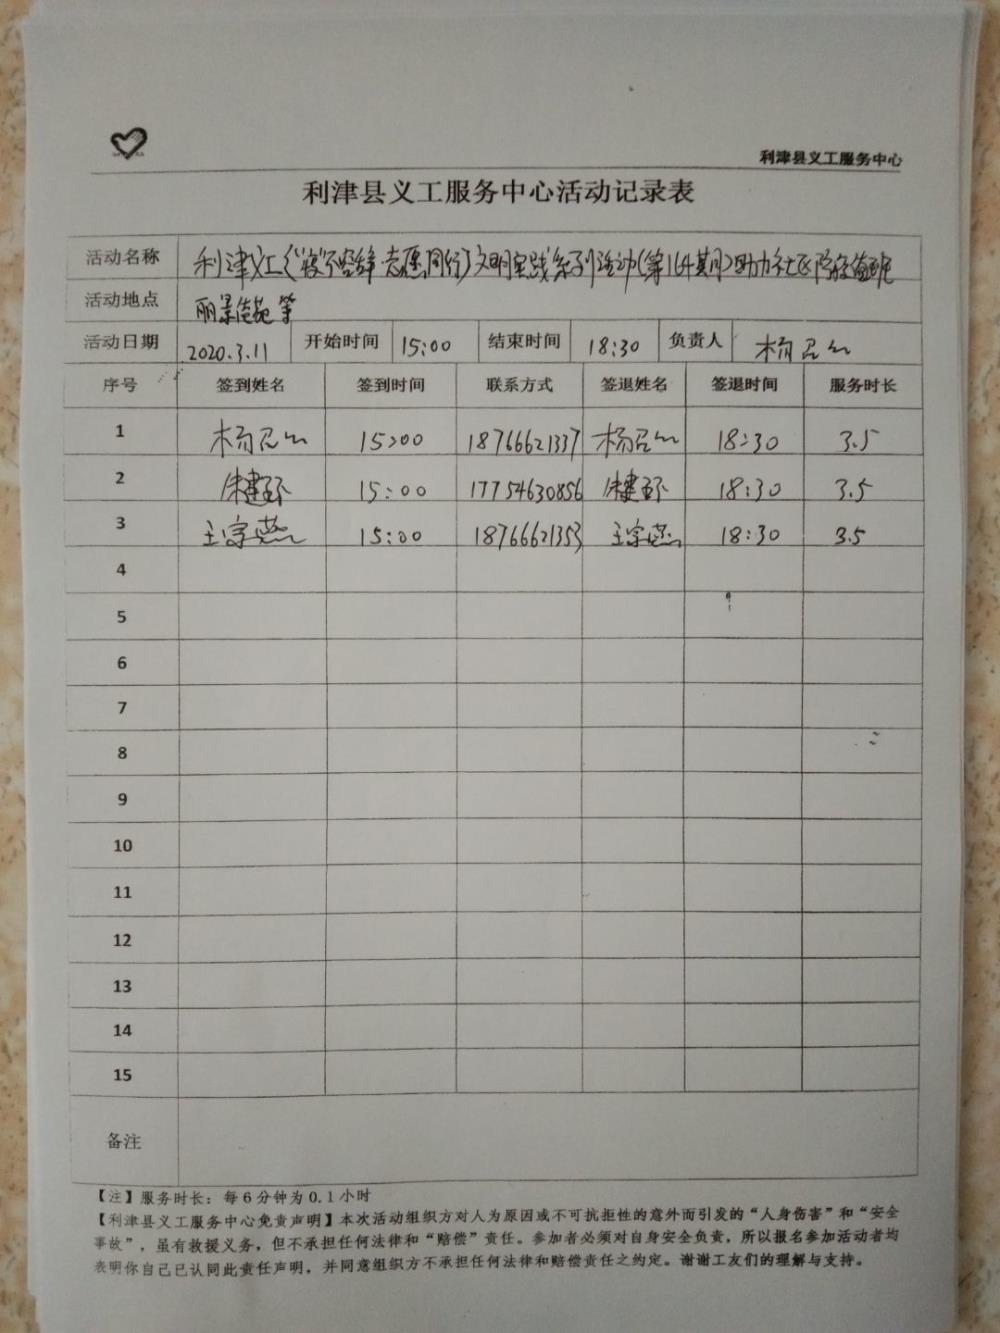 利津县义工服务中心
利津县义工服务中心活动记录表
活动名称 利津义工《"疫"不容辞·志愿同行》文明实践系列活动(第164期)助力社区防疫值班
活动地点 丽景佳苑等
活动日期 2020.3.11 开始时间 15:00 结束时间 18:30 负责人 杨
序号 签到姓名 签到时间 联系方式 签退姓名 签退时间 服务时长
1 杨 15:00 18766621337 杨 18:30 3.5
2 朱建环 15:00 17754630856 朱建环 18:30 3.5
3 王宗燕 15:00 18766621353 王宗燕 18:30 3.5
4
5
6
7
8
9
10
11
12
13
14
15
备注
【注】服务时长：每6分钟为0.1小时
【利津县义工服务中心免责声明】本次活动组织方对人为原因或不可抗拒性的意外而引发的“人身伤害”和“安全
事故”，虽有救援义务，但不承担任何法律和“赔偿”责任。参加者必须对自身安全负责，所以报名参加活动者均
表明你自己已认同此责任声明，并同意组织方不承担任何法律和赔偿责任之约定。谢谢工友们的理解与支持。